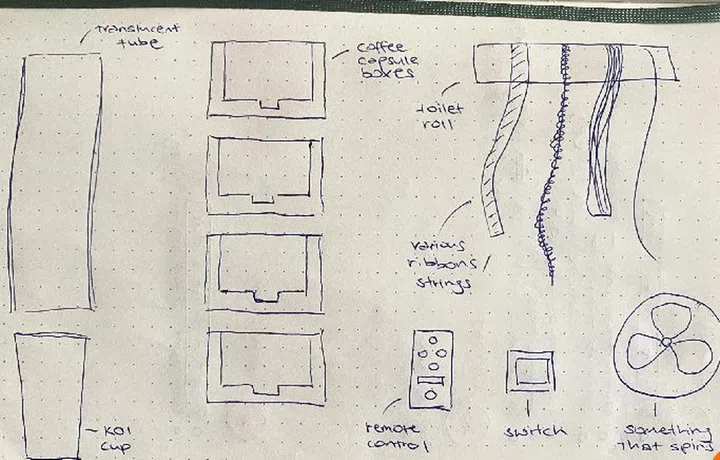 translucent
tube
coffee
capsule
boxes
toilet
roll
various
ribbons/
strings
KOI
cup
remote
control
switch
something
that spins